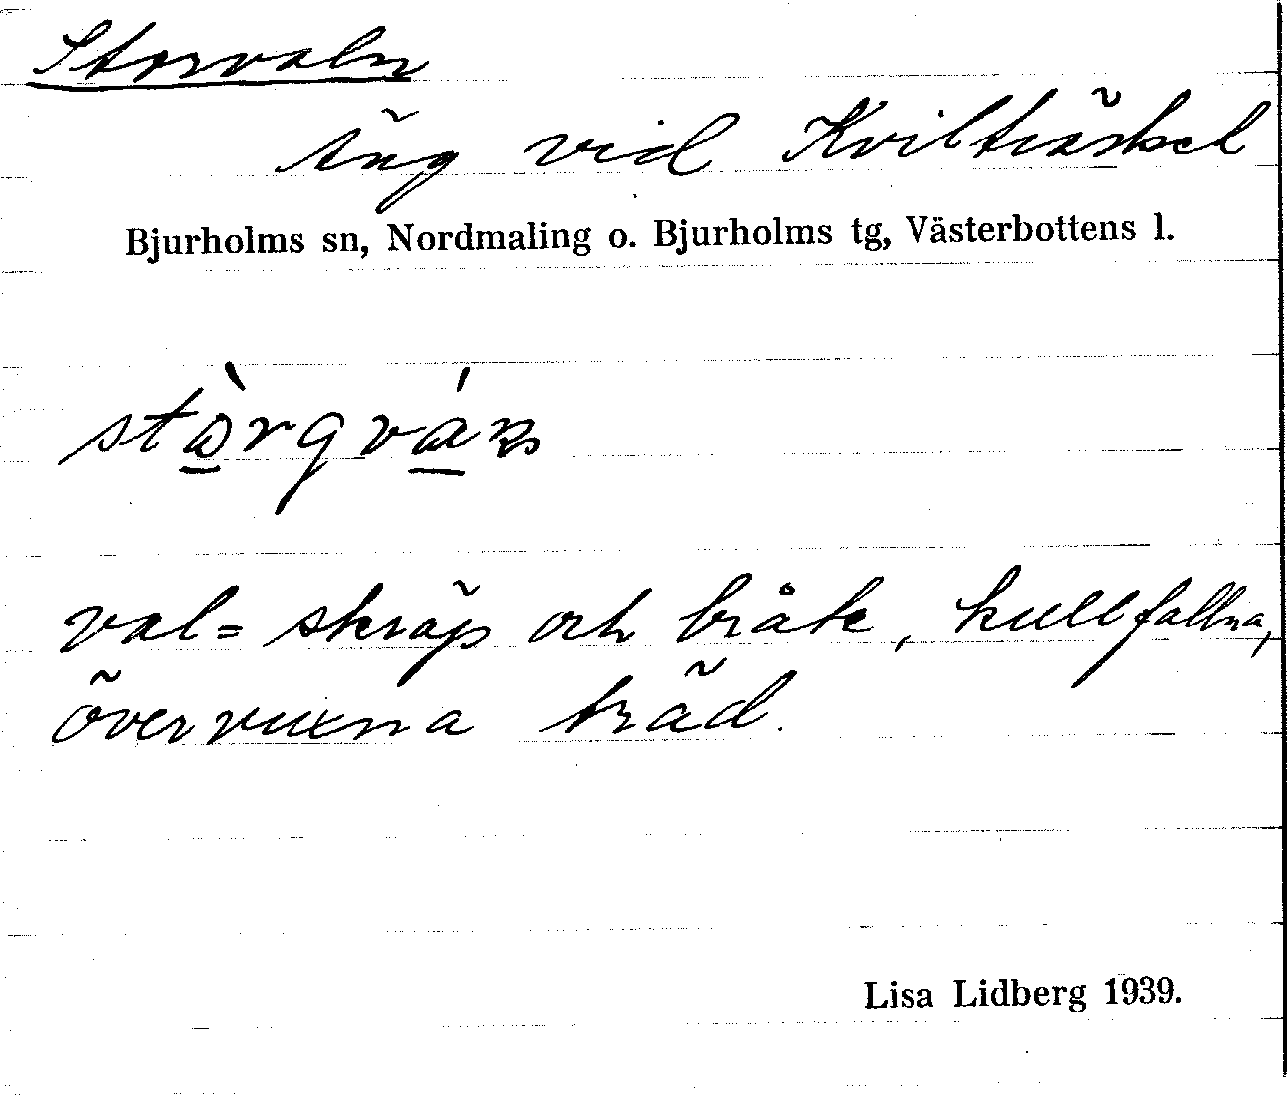 Storvaln
Äng vid Kvilträsket
Bjurholms sn, Nordmaling o. Bjurholms tg, Västerbottens l.
val= skräp och bråte, kullfallna,
övervuxna träd.
Lisa Lidberg 1939.